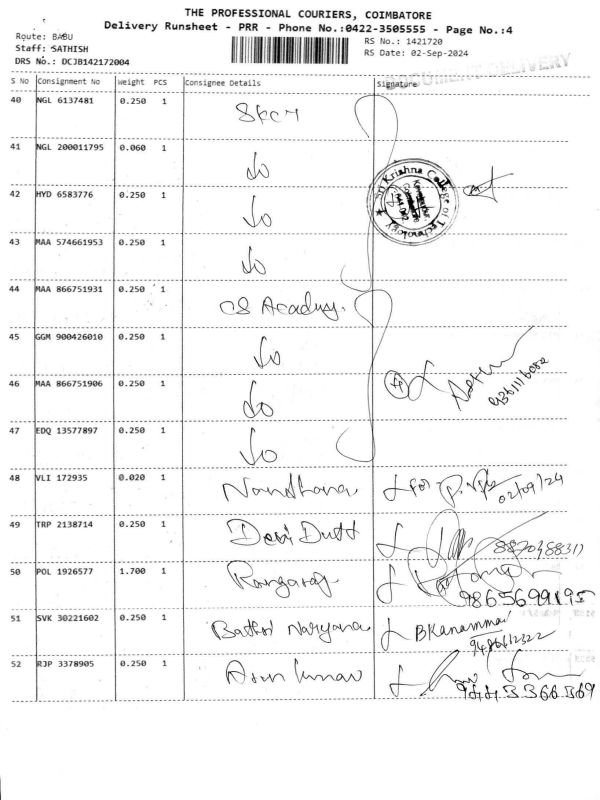 THE PROFESSIONAL COURIERS, COIMBATORE
Delivery Runsheet - PRR - Phone No.:0422-3505555 - Page No.:4
Route: BABU
Staff: SATHISH
DRS No.: DCJB142172004
RS No.: 1421720
RS Date: 02-Sep-2024
DOCUMENT DELIVERY
S No Consignment No Weight PCS Consignee Details Signature
40 NGL 6137481 0.250 1 SKCT
41 NGL 200011795 0.060 1 do
42 HYD 6583776 0.250 1 do
Sri Krishna College of Technology
Coimbatore
43 MAA 574661953 0.250 1 do
44 MAA 866751931 0.250 1 CS Academy.
45 GGM 900426010 0.250 1 do
46 MAA 866751906 0.250 1 do
9361116082
47 EDQ 13577897 0.250 1 do
48 VLI 172935 0.020 1 Nandhana for 02/09/24
49 TRP 2138714 0.250 1 Devi Dutt
50 POL 1926577 1.700 1 Rangaraj 9865699195
51 SVK 30221602 0.250 1 Bathri Naryana BKanammal
9486612322
52 RJP 3378905 0.250 1 Arun kumar 9443366369